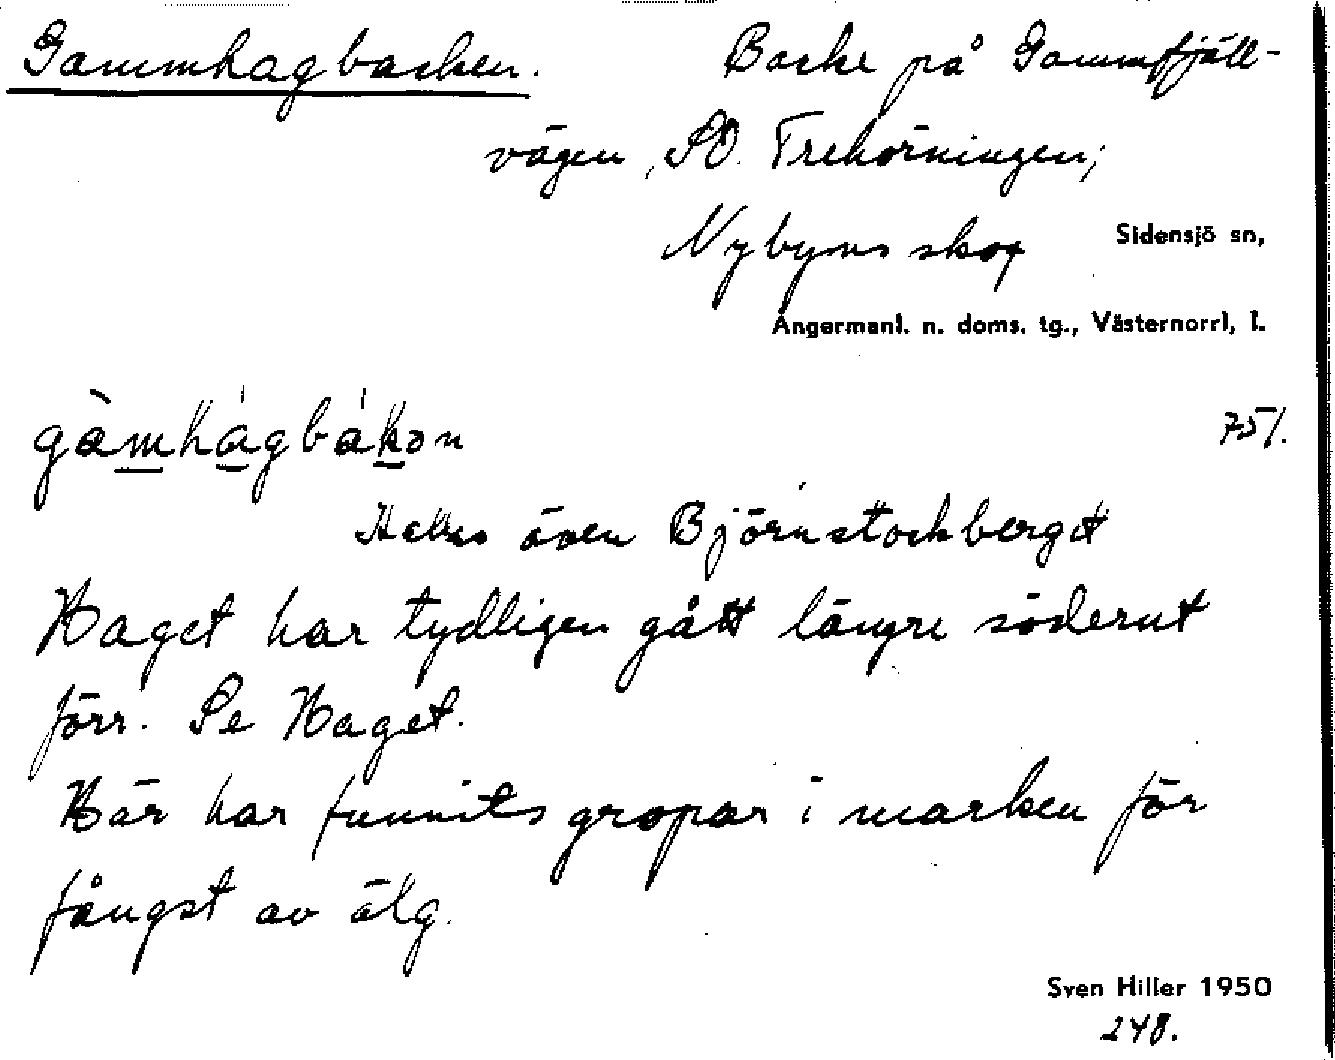 Gammhagbacken. Backe på Gammfjäll-
vägen, SO. Trehörningen;
Nybyns skog Sidensjö sn,
Ångermanl. n. doms. tg., Västernorrl, l.
gàmhágbákən 75/.
Helt även Björnstockberget
Haget har tydligen gått längre söderut
förr. Se Haget.
Här har funnits gropar i marken för
fångst av älg.
Sven Hiller 1950
248.